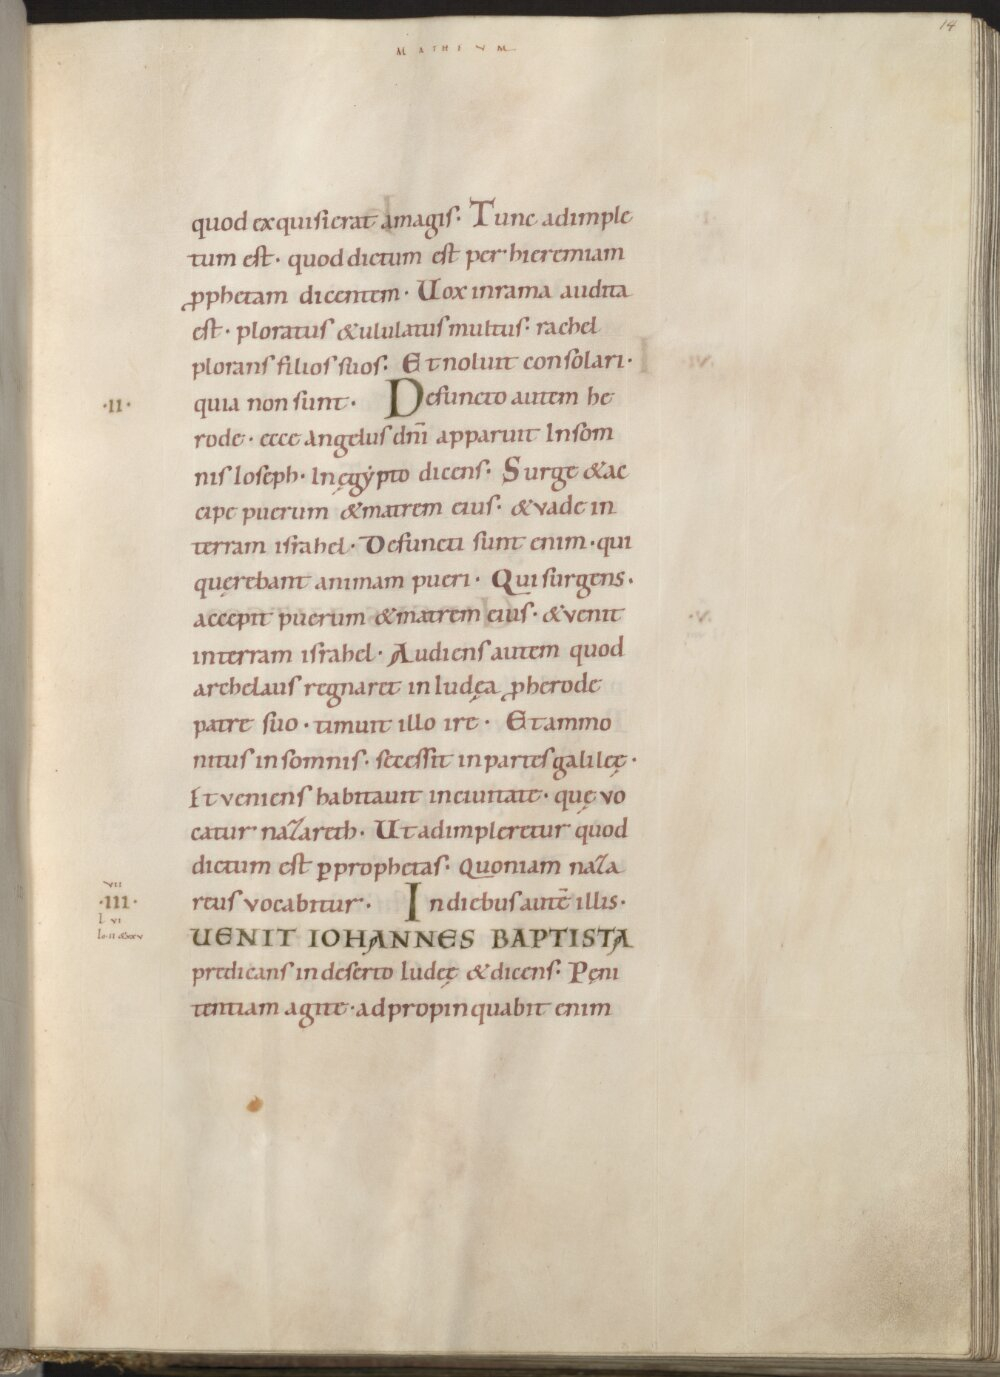 MATHEUM
14
quod exquisierat amagis· Tunc adimple
tum est· quod dictum est per hieremiam
ꝓphetam dicentem· Uox inrama audita
est· ploratus &ululatus multus· rachel
plorans filios suos· Et noluit consolari·
·II· quia non sunt· Defuncto autem he
rode· ecce angelus dñi apparuit Insom
nis Ioseph· In ęgẏpto dicens· Surge &ac
cipe puerum &matrem eius· &vade in
terram israhel· Defuncti sunt enim· qui
quęrebant animam pueri· Qui surgens·
accepit puerum &matrem eius· &venit
interram israhel· Audiens autem quod
archelaus regnaret in Iudęa ꝓherode
patre suo· timuit illo ire· Et ammo
nitus in somnis· secessit in partes galileę·
Et veniens habitauit in ciuitate· quę vo
catur nazareth· Ut adimpleretur quod
dictum est ꝑprophetas· Quoniam naza
VII
·III· reus vocabitur· In diebus autē illis·
L VI
UENIT IOHANNES BAPTISTA
predicans in deserto Iudeę &dicens· Pęni
tentiam agite· adpropinquabit enim